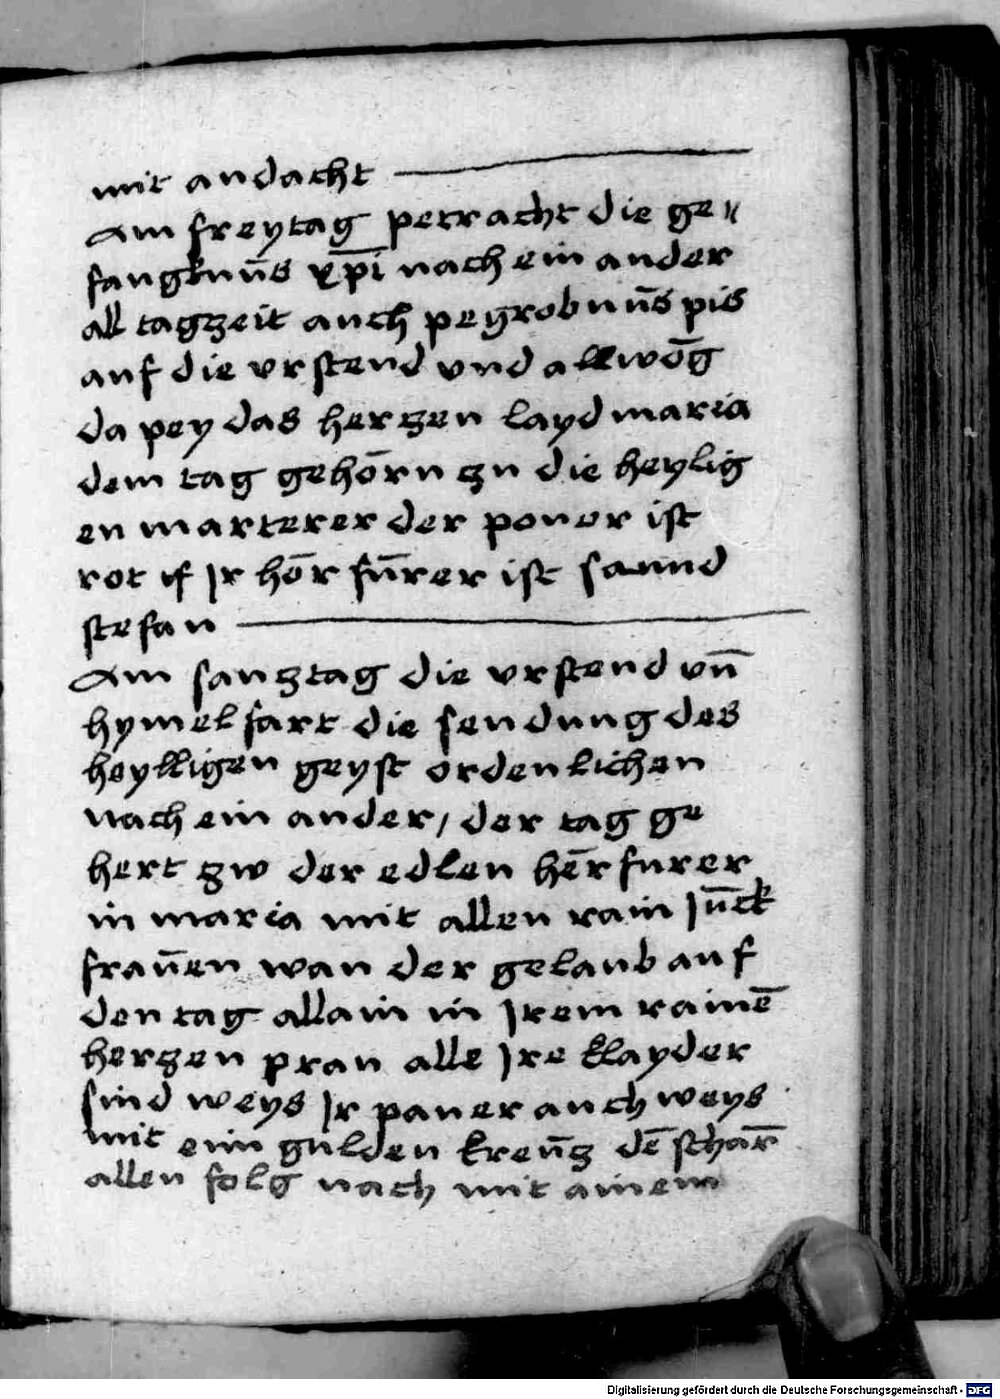 mit andacht
Am freytag petracht die ge⸗
fangknūs xp̄i nach ein ander
all tagzeit auch pegrobnūs pis
auf die vrstend vnd allwōg
da pey das herzen layd maria
dem tag gehōrn zu die heylig
en marterer der poner ist
rot if Jr hōr fūrer ist sannd
stefan
Am sanztag die vrstend vn̄
hymel fart die sendung des
heylligen geyst ordenlichen
nach ein ander, der tag ge
hert zw der edlen hēr furer
in maria mit allen rain Jūck
fraūen wan der gelaub auf
den tag allain in Jrem rainē
herzen pran alle Jre klayder
sind weys Jr paner auch weys
mit eim gulden kreūz dē schar̄
allen folg nach mit ainem
Digitalisierung gefördert durch die Deutsche Forschungsgemeinschaft - DFG